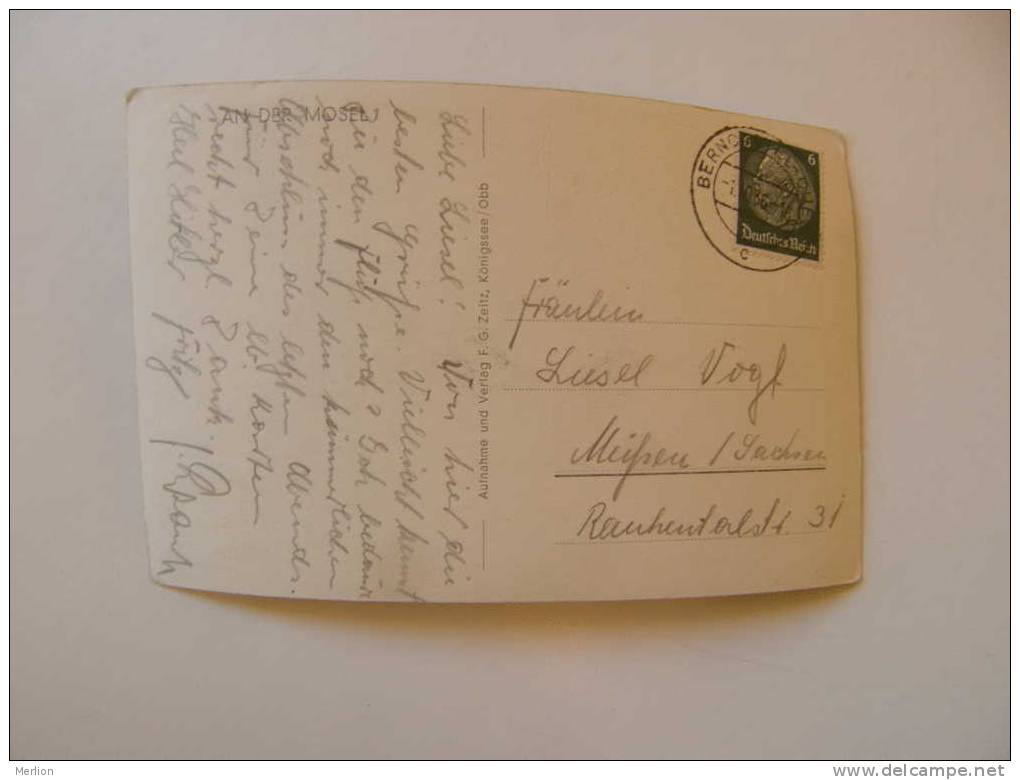 AN DER MOSEL
Liebe Liesel! Von hier die
besten Grüße. Vielleicht kennst
Du den Fluß noch? Ich bedaure
noch immer den heimlichen
Abschluss des letzten Abends.
Für Deine lb. Karten
recht herzl. Dank.
Heil Hitler
Aufnahme und Verlag F. G. Zeitz, Königssee/Obb
BERNC
6 6
Deutsches Reich
c
Fräulein
Liesel Vogt
Meißen / Sachsen
Rauhentalstr. 31
Merlion
www.delcampe.net